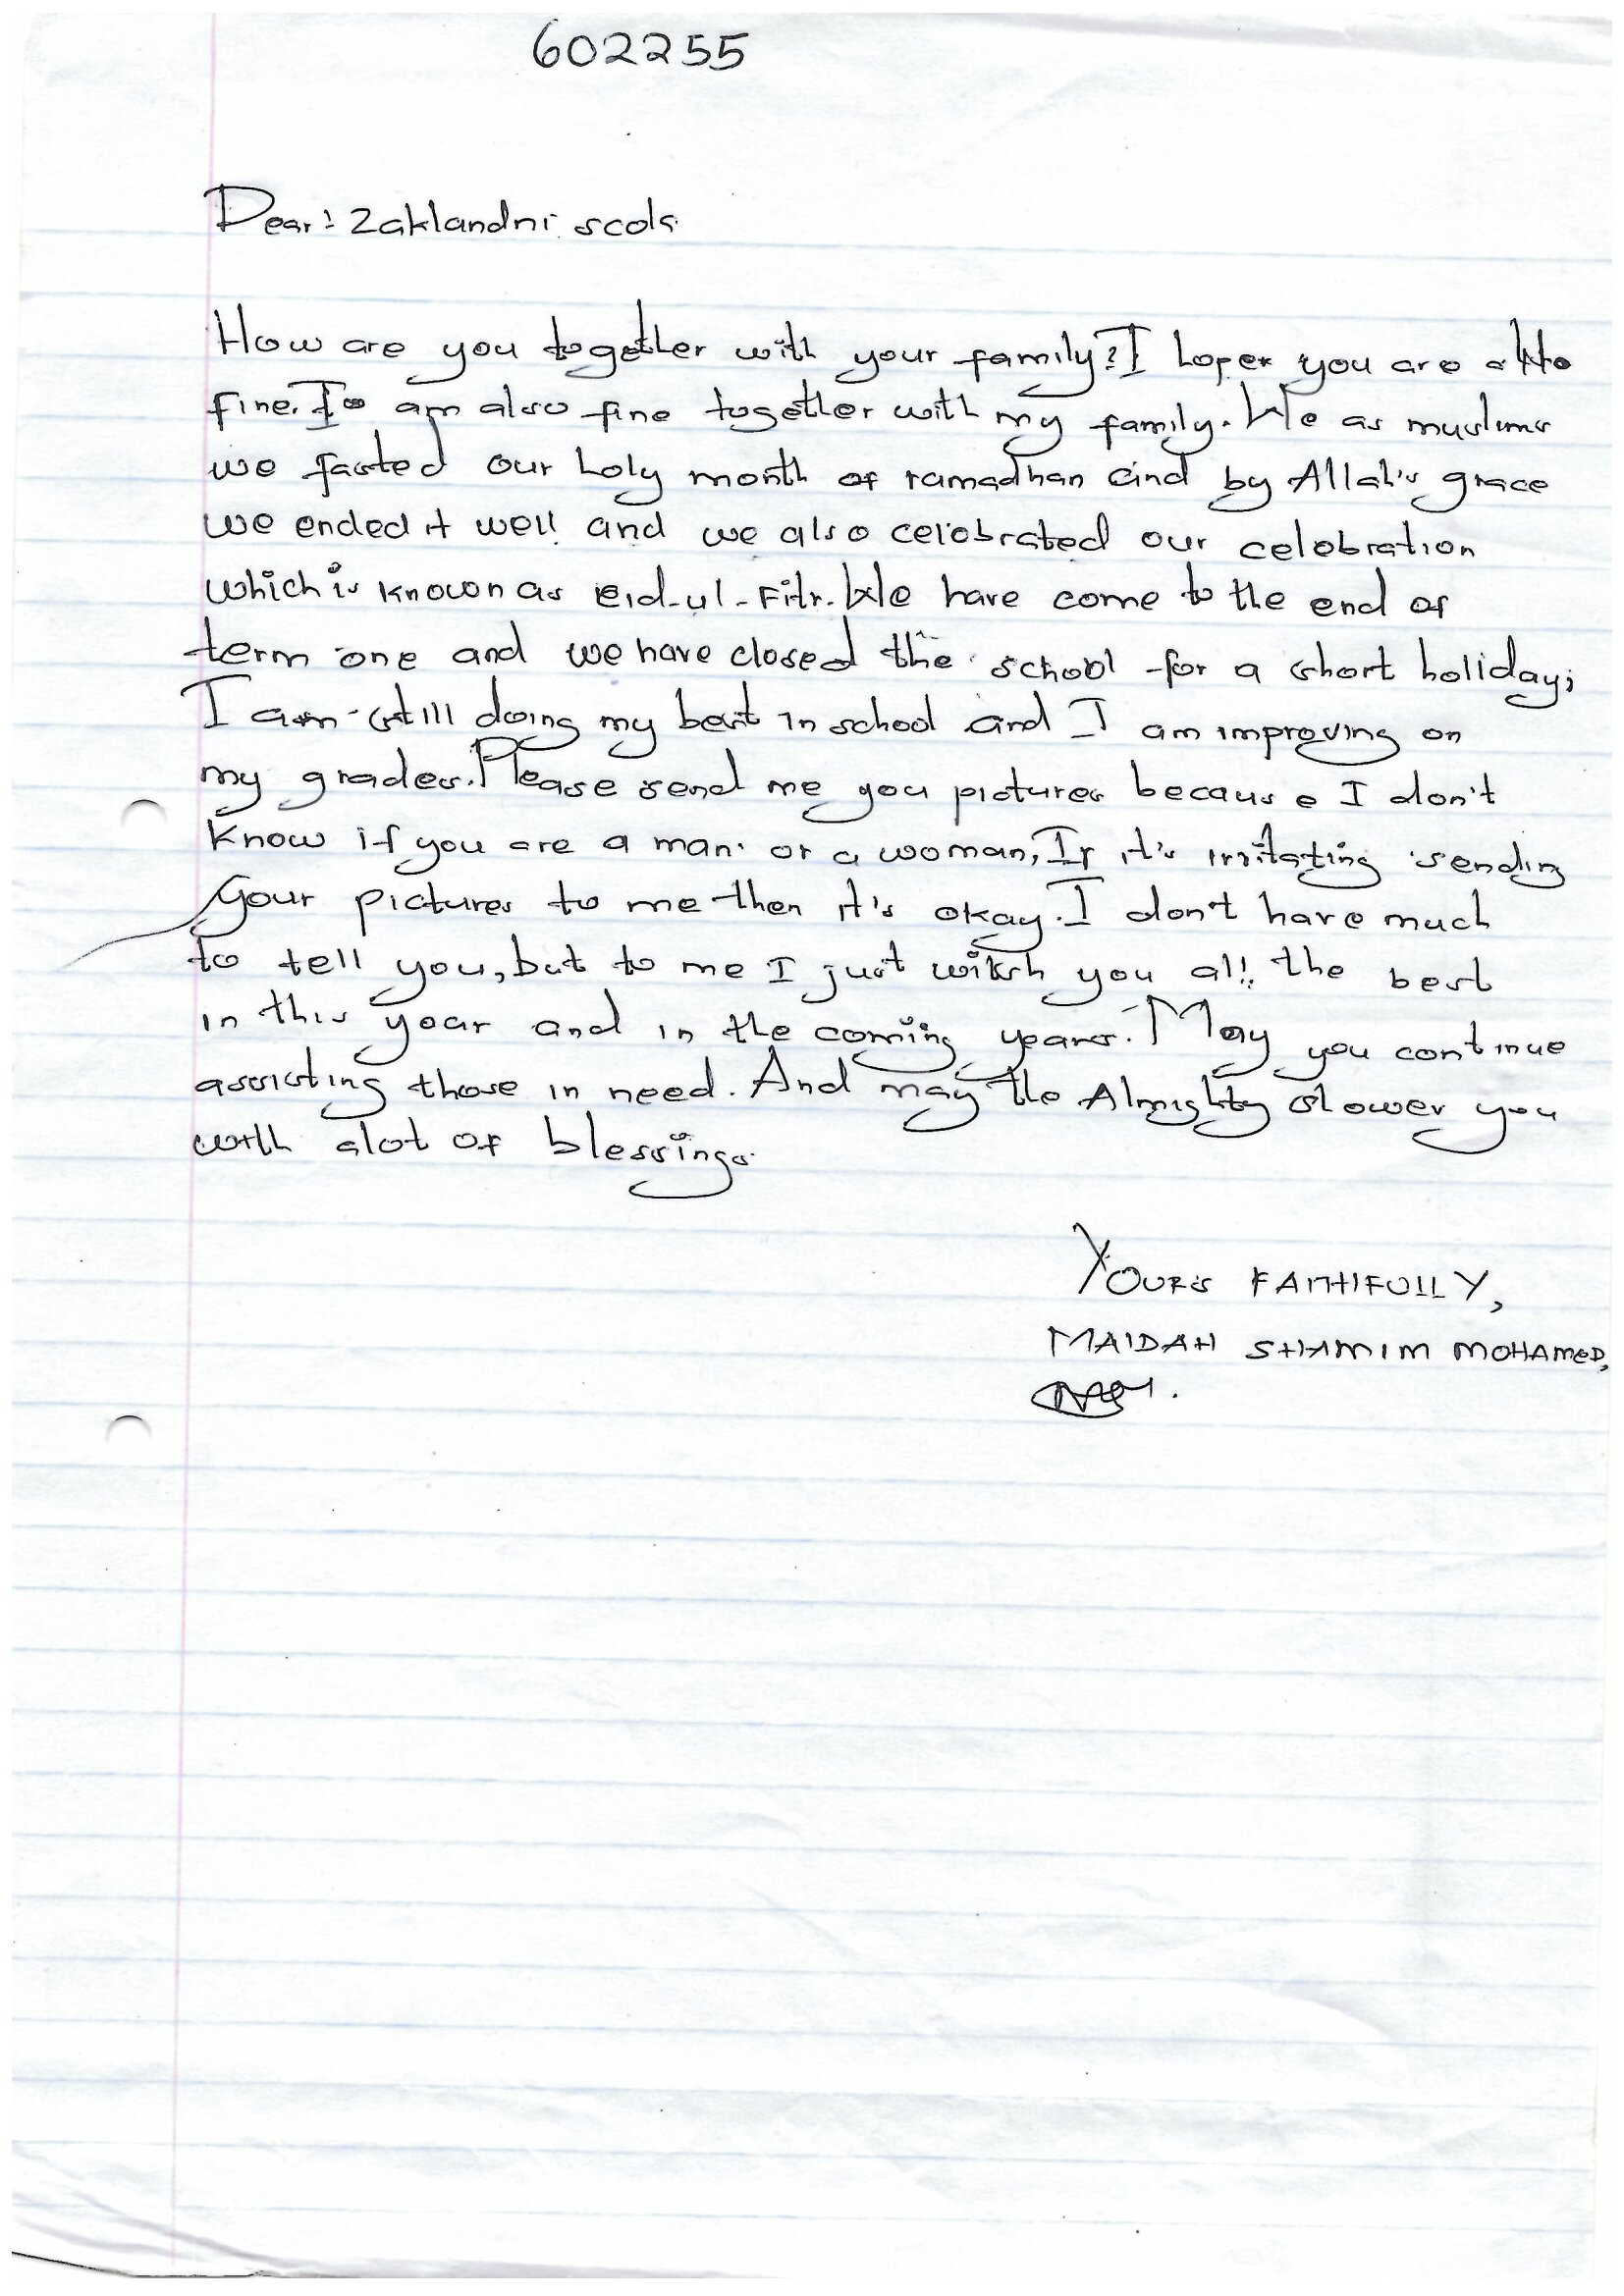 602255
Dear: Zaklandni scols
How are you together with your family? I hope you are also
fine. I am also fine together with my family. We as muslims
we fasted our holy month of ramadhan and by Allah's grace
we ended it well and we also celebrated our celebration
which is known as Eid-ul-Fitr. We have come to the end of
term one and we have closed the school for a short holiday;
I am still doing my best in school and I am improving on
my grades. Please send me you pictures because I don't
know if you are a man or a woman, If it's irritating sending
your pictures to me then it's okay. I don't have much
to tell you, but to me I just wish you all the best
in this year and in the coming years. May you continue
assisting those in need. And may the Almighty shower you
with alot of blessings.
YOURS FAITHFULLY,
MAIDAH SHAMIM MOHAMED,